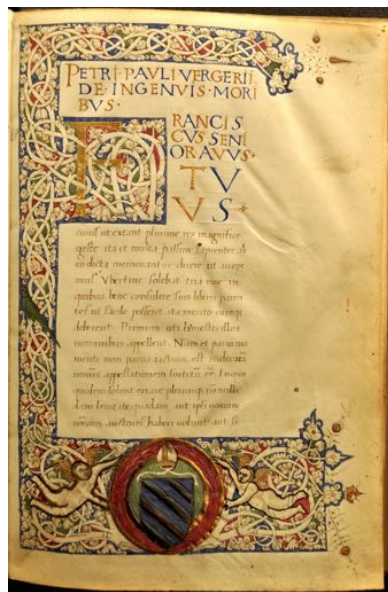 PETRI·PAVLI VERGERII
DE·INGENVIS·MORI
BVS·
FRANCIS
CVS SENI
OR AVVS·
TV
VS·
cuius ut extant plurime res magnifice
geste ita et multa passim sapienter ab
eo dicta memorantur dicere ut accepi
mus Vbertine solebat tria esse in
quibus bene consulere suis liberis paren
tes et facile possent ita merito
deberent. Primum uti honestis illos
nominibus appellent. Nam et parui mo
menti non parua iactura est
nominis appellationem sortitū eē. In quo
quidem solent errare
dam leuitate quidam aut ipsi nouorum
nominum auctores haberi uolunt aut si